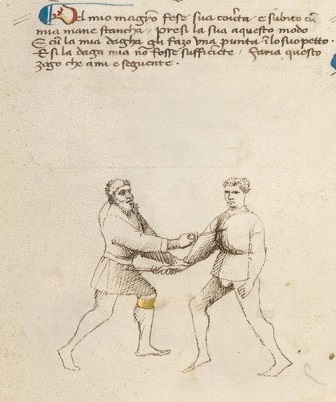 Del mio magro fese sua cov̄ta · e subito cū
mia mane stancha / presi la sua a questo modo
E cū la mia dagha gli fazo una punta ī lo suo petto ·
E si la daga mia nō fosse sufficiēte / faria questo
zogo che a mi e seguente ·